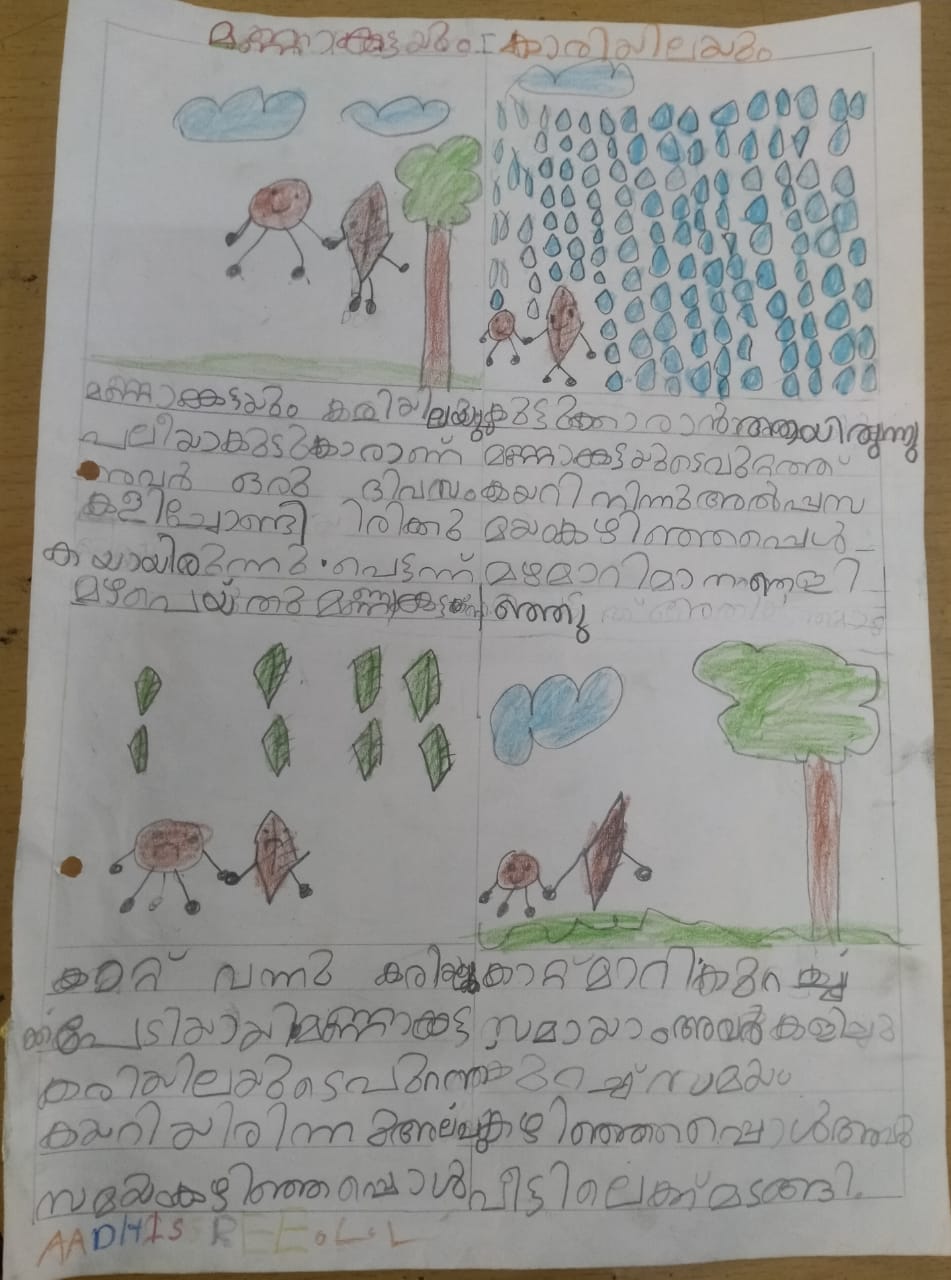 മണ്ണാങ്കട്ടയും കാരിയിലയും
മണ്ണാങ്കട്ടയും കരിയിലയും
കുട്ടുക്കാരാൻ ആയിരുന്നു
പലിയാകുട്ടുകാരാണ്
അവർ ഒരു ദിവസം
കളിച്ചോണ്ടി ിരിക്കു
കയായിരുന്നു. പെട്ടന്ന്
മഴപെയ്തു മണ്ണാങ്കട്ട
മണ്ണാങ്കട്ടയുടെപുറത്ത്
കയറി നിന്നു അൽപ്പസ
മയംകഴിഞ്ഞപ്പെൾ
മഴമാറി മാനംതെളി
ഞ്ഞു
കാറ്റ് വന്നു കരിയില
ക്ക് പേടിയായി മണ്ണാങ്കട്ട
കരിയിലയുടെപുറത്ത
കയറിയിരിന്ന അല്പ
സമയംകഴിഞ്ഞപ്പൊൾ
കാറ്റ് മാറി കുറച്ച്
സമായാം അവർ കളിച്ചു
കുറച്ച് സമയം
കഴിഞ്ഞപ്പൊൾ അവർ
വീട്ടിലെക്ക് മടങ്ങി.
AADHISREE o L. L